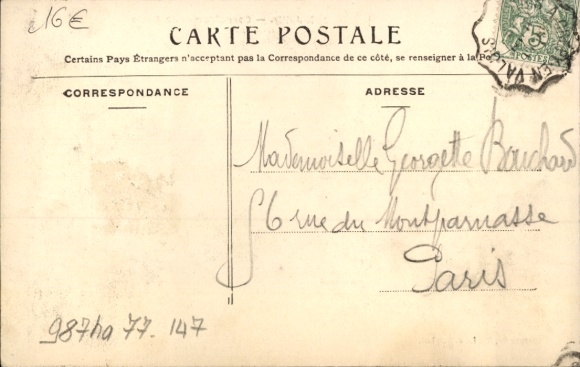 16€
CARTE POSTALE
Certains Pays Étrangers n'acceptant pas la Correspondance de ce côté, se renseigner à la Po
CORRESPONDANCE
ADRESSE
Mademoiselle Georgette Bouchard
56 rue du Montparnasse
Paris
987ha 77. 147
5
POSTES
EN VAL